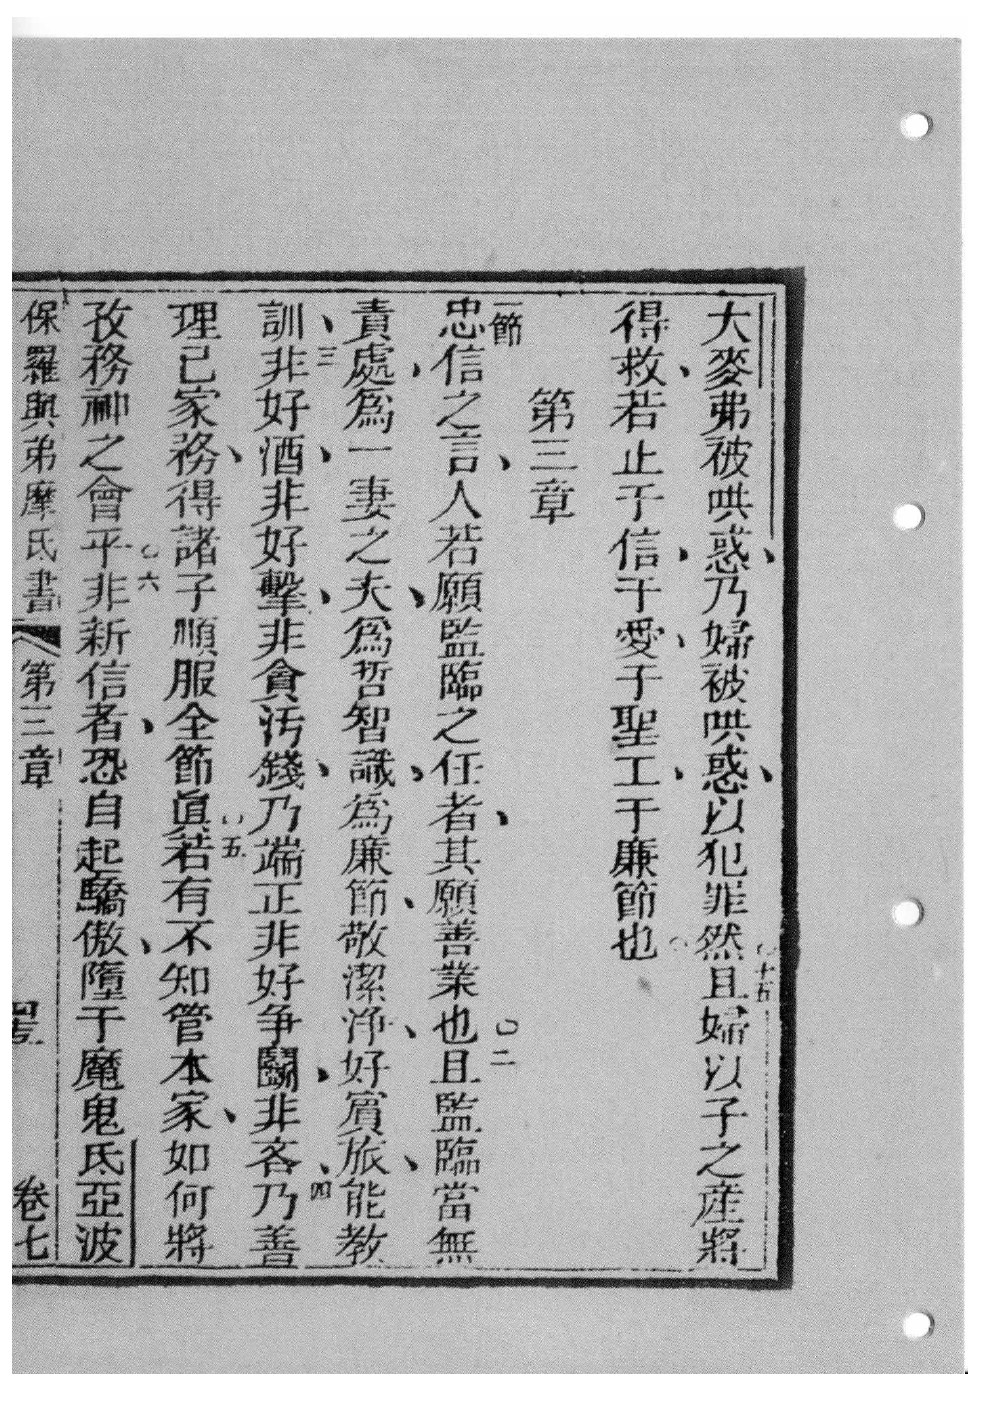 大麥弗被哄惑、乃婦被哄惑、以犯罪然○十五且婦以子之產將
得救、若止于信、于愛、于聖工、于廉節也○
第三章
一節忠信之言、人若願監臨之任者、其願善業也○二且監臨當無
責處、爲一妻之夫、爲哲智識、爲廉節、敬潔淨、好賓旅、能教
訓、三非好酒、非好擊、非貪汚錢、乃端正非好爭鬬、非吝、四乃善
理己家務、得諸子順服全節眞○五若有不知管本家、如何將
孜務神之會乎○六非新信者、恐自起驕傲、墮于魔鬼氐亞波
保羅與弟摩氏書 第三章 卷七